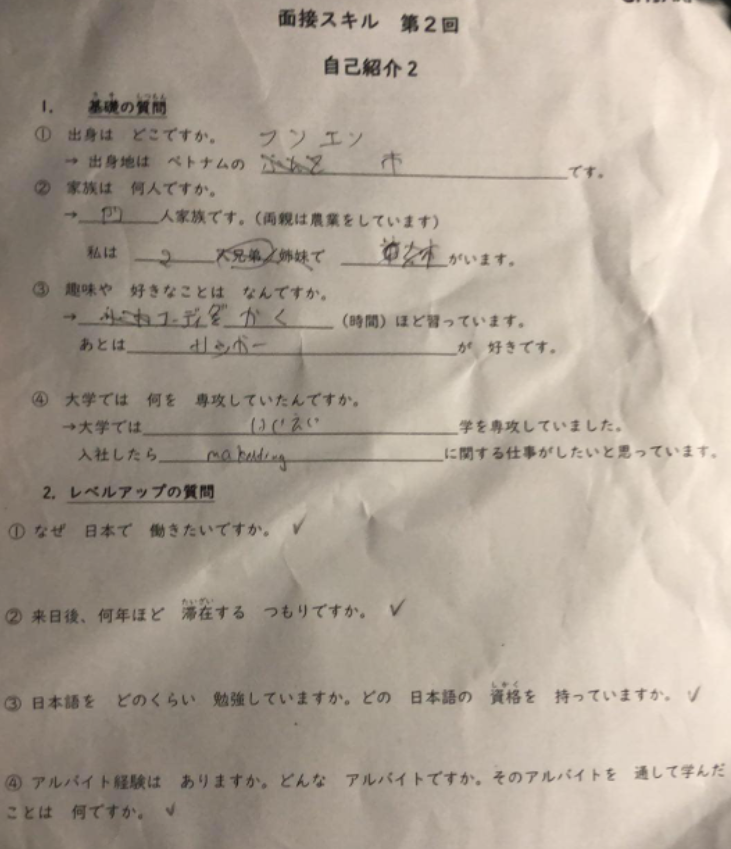 面接スキル 第2回
自己紹介2
1. 基礎の質問
① 出身は どこですか。 フンエン
→ 出身地は ベトナムの 市 です。
② 家族は 何人ですか。
→ 四 人家族です。(両親は農業をしています)
私は 2 人兄弟/姉妹で がいます。
③ 趣味や 好きなことは なんですか。
→ かく (時間)ほど習っています。
あとは サッカー が 好きです。
④ 大学では 何を 専攻していたんですか。
→大学では 学を専攻していました。
入社したら に関する仕事がしたいと思っています。
2. レベルアップの質問
① なぜ 日本で 働きたいですか。 ✓
② 来日後、何年ほど 滞在する つもりですか。 ✓
③ 日本語を どのくらい 勉強していますか。どの 日本語の 資格を 持っていますか。 ✓
④ アルバイト経験は ありますか。どんな アルバイトですか。そのアルバイトを 通して学んだ
ことは 何ですか。 ✓